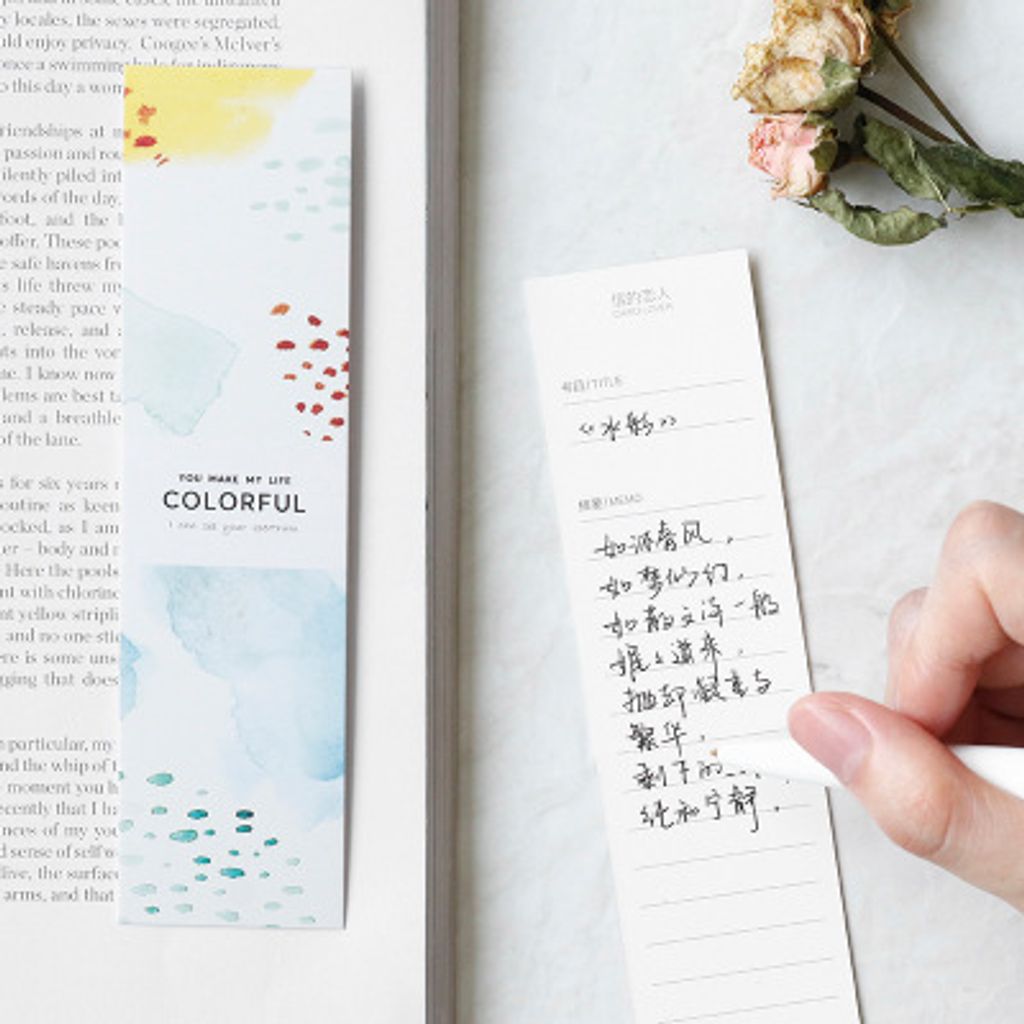 y locales, the sexes were segregated,
uld enjoy privacy. Coogee's McIver's
once a swimming hole for indigenous
o this day a wom
riendships at m
passion and rou
ilently piled int
words of the day,
foot, and the
offer. These poo
e safe havens fr
s life threw my
steady pace
release, and
ts into the vor
ne. I know now
lems are best ta
and a breathle
of the lane.
s for six years
outine as keen
ocked, as I am
er – body and
Here the pools
nt with chlorine
nt yellow stripli
and no one stic
ere is some uns
ging that does
n particular, my
nd the whip of t
moment you h
ecently that I ha
nces of my you
d sense of self w
live, the surface
arms, and that
YOU MAKE MY LIFE
COLORFUL
信的恋人
CARD LOVER
书目/TITLE
《水影》
摘要/MEMO
如沐春风，
如梦似幻，
如散文诗一般
娓娓道来，
抛却凝重与
繁华，
剩下的
纯和宁静。